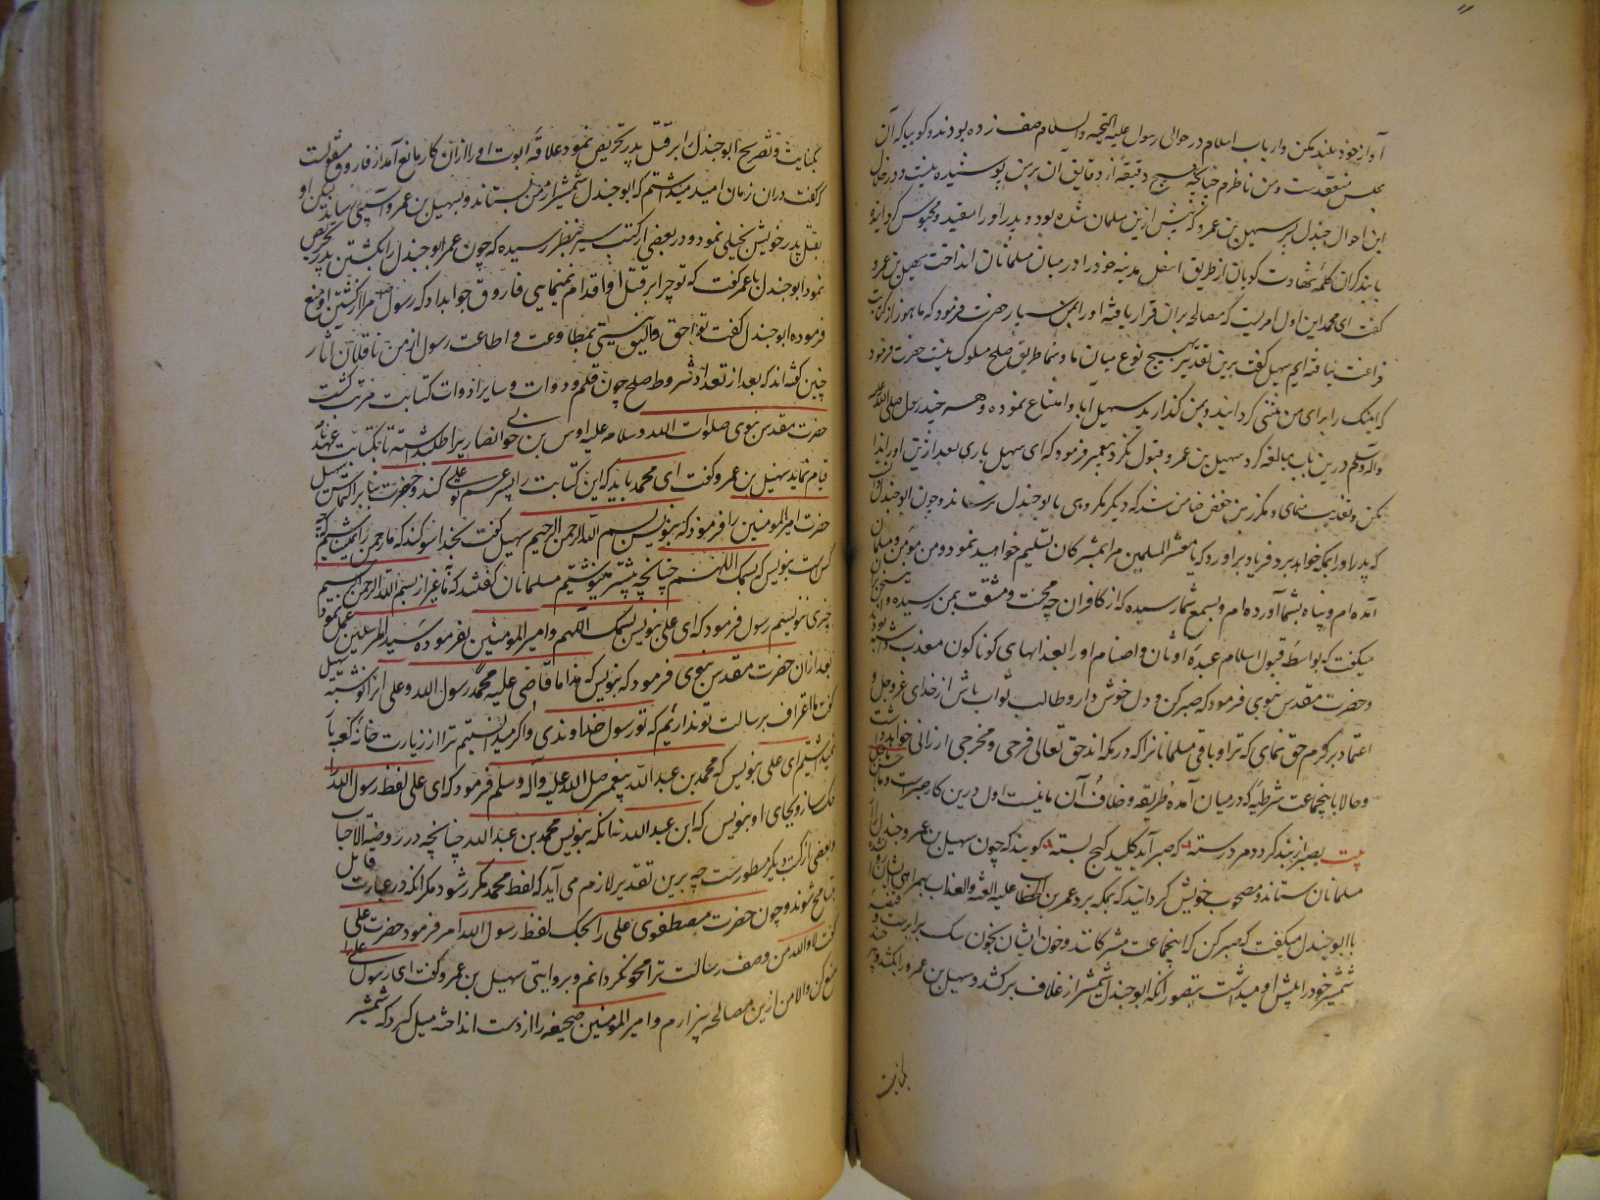 آواز خود بلند مکن و ارباب اسلام در حوالی رسول علیه التحیه والسلام صف زده بودند و گوییا که آن
مجلس منعقدست و من ناظرم چنانچه هیچ دقیقهٔ از دقایق آن بر من پوشیده نیست و در خلال
این احوال جندل پسر سهیل بن عمرو که پیش ازین مسلمان شده بود و پدر او را مقید و محبوس گردانیده
با بند گران کلمهٔ شهادت گویان از طریق اسفل مدینه خود را در میان مسلمانان انداخت سهیل بن عمرو
گفت ای محمد این اول امریست که مصالحه بران قرار یافته او را بمن سپار حضرت فرمود که ما هنوز از کتابت
فراغت نیافته ایم سهیل گفت برین تقدیر هیچ نوع میان ما و شما طریق صلح مسلوک نیست حضرت فرمود
که اینک را برای من مثتنی گردانید و بمن گذارید سهیل ابا و امتناع نموده و هر چند رسول صلی الله علیه
واله وسلم درین باب مبالغه کرد سهیل بن عمرو قبول نکرد پیغمبر فرمود که ای سهیل باری بعد ازین او را ایذا
مکن و تعذیب منمای و مکرز بن حفص ضامن شد که دیگر مکروهی بابوجندل نرساند و چون ابوجندل دانست
که پدر او را بمکه خواهد برد فریاد براورد که یا معشر المسلمین مرا بمشرکان تسلیم خواهید نمود و من مومن و مسلمان
آمده ام و پناه بشما آورده ام و بسمع شما رسیده که از کافران چه محنت و مشقت بمن رسیده و
میگفت که بواسطهٔ قبول اسلام عبدهٔ اوثان و اصنام او را بعذابهای گوناگون معذب داشته بودند
و حضرت مقدس نبوی فرمود که صبر کن و دل خوش دار و طالب ثواب باش از خدای عزوجل و
اعتماد بر کرم حق نمای که ترا و باقی مسلمانانرا که در مکه اند حق تعالی فرحی و مخرجی ارزانی خواهد داشت
و حالا با اینجماعت شرطیه که در میان آمده طریقه و خلاف آن ما نیست اول درین کار صبرست و
بیت بصبر از بند گردد مرد رسته که صبر آمد کلید گنج بسته گویند که چون سهیل بن عمرو جندل را از
مسلمانان ستاند و مصحوب خویش گردانید که بمکه برد عمر بن الخطاب علیه همراهی ایشان
با ابوجندل میگفت که صبر کن که اینجماعت مشرکانند و خون ایشان بخون سگ برابرست و قبضه
شمشیر خود را پیش او میداشت بتصور آنکه ابوجندل شمشیر از غلاف برکشد و سهیل بن عمرو را بکشد و
بکنایت
بکنایت و تصریح ابوجندل را بر قتل پدر تحریص نمود علاقهٔ ابوت او را از ان کار مانع آمد از فاروق منقولست
که گفت دران زمان امید میداشتم که ابوجندل شمشیر از من بستاند و بسهیل بن عمرو آسیبی رساند لیکن او
بقتل پدر خویش بخیلی نمود و در بعضی از کتب سیر بنظر رسیده که چون عمر ابوجندل را بکشتن پدر تحریص
نمود ابوجندل با عمر گفت که تو چرا بر قتل او اقدام نمینمایی فاروق جواب داد که رسول مرا از کشتن او منع
فرموده ابوجندل گفت تو احق و الیق نیستی بمطاوعت و اطاعت رسول از من ناقلان آثار
چنین گفته اند که بعد از تعداد شروط صلح چون قلم و دوات و سایر ادوات کتابت مرتب گشت
حضرت مقدس نبوی صلوات الله و سلامه علیه اوس بن خولی انصاریرا طلب داشته تا بکتابت عهدنامه
قیام نماید سهیل بن عمرو گفت ای محمد باید که این کتابت را پسر عم تو علی کند و حضرت بنابر التماس سهیل
حضرت امیرالمومنین را فرمود که بنویس بسم الله الرحمن الرحیم سهیل گفت بخدا سوگند که ما رحمن را نمیشناسیم که
کیست بنویس که بسمک اللهم چنانچه پیشتر مینوشتیم مسلمانان گفتند که ما غیر از بسم الله الرحمن الرحیم
چیزی ننویسیم رسول فرمود که ای علی بنویس بسمک اللهم و امیرالمومنین بفرموده سیدالمرسلین عمل نمود
بعد ازان حضرت مقدس نبوی فرمود که بنویس که هذا ما قاضی علیه محمد رسول الله و علی انرا نوشته سهیل
گفت ما اعتراف برسالت تو نداریم که تو رسول خداوندی و اگر میدانستیم ترا از زیارت خانهٔ کعبه باز
نمیداشتیم ای علی بنویس که محمد بن عبدالله پیغمبر صلی الله علیه وآله وسلم فرمود که ای علی لفظ رسول الله را
حک ساز و بجای او بنویس که ابن عبدالله نه انکه بنویس محمد بن عبدالله چنانچه در روضة الاحباب
و بعضی از کتب دیگر مسطورست چه برین تقدیر لازم می آید که لفظ محمد مکرر شود مگر انکه در عبارت قایل
بتسامح شوند و چون حضرت مصطفوی علی را بحک لفظ رسول الله امر فرمود حضرت علی
گفت لا والله من وصف رسالت ترا محو نگردانم و بروایتی سهیل بن عمرو گفت ای رسول
منع کن والا من ازین مصالحه بیزارم و امیرالمومنین صحیفه را از دست انداخته میل کرد که شمشیر